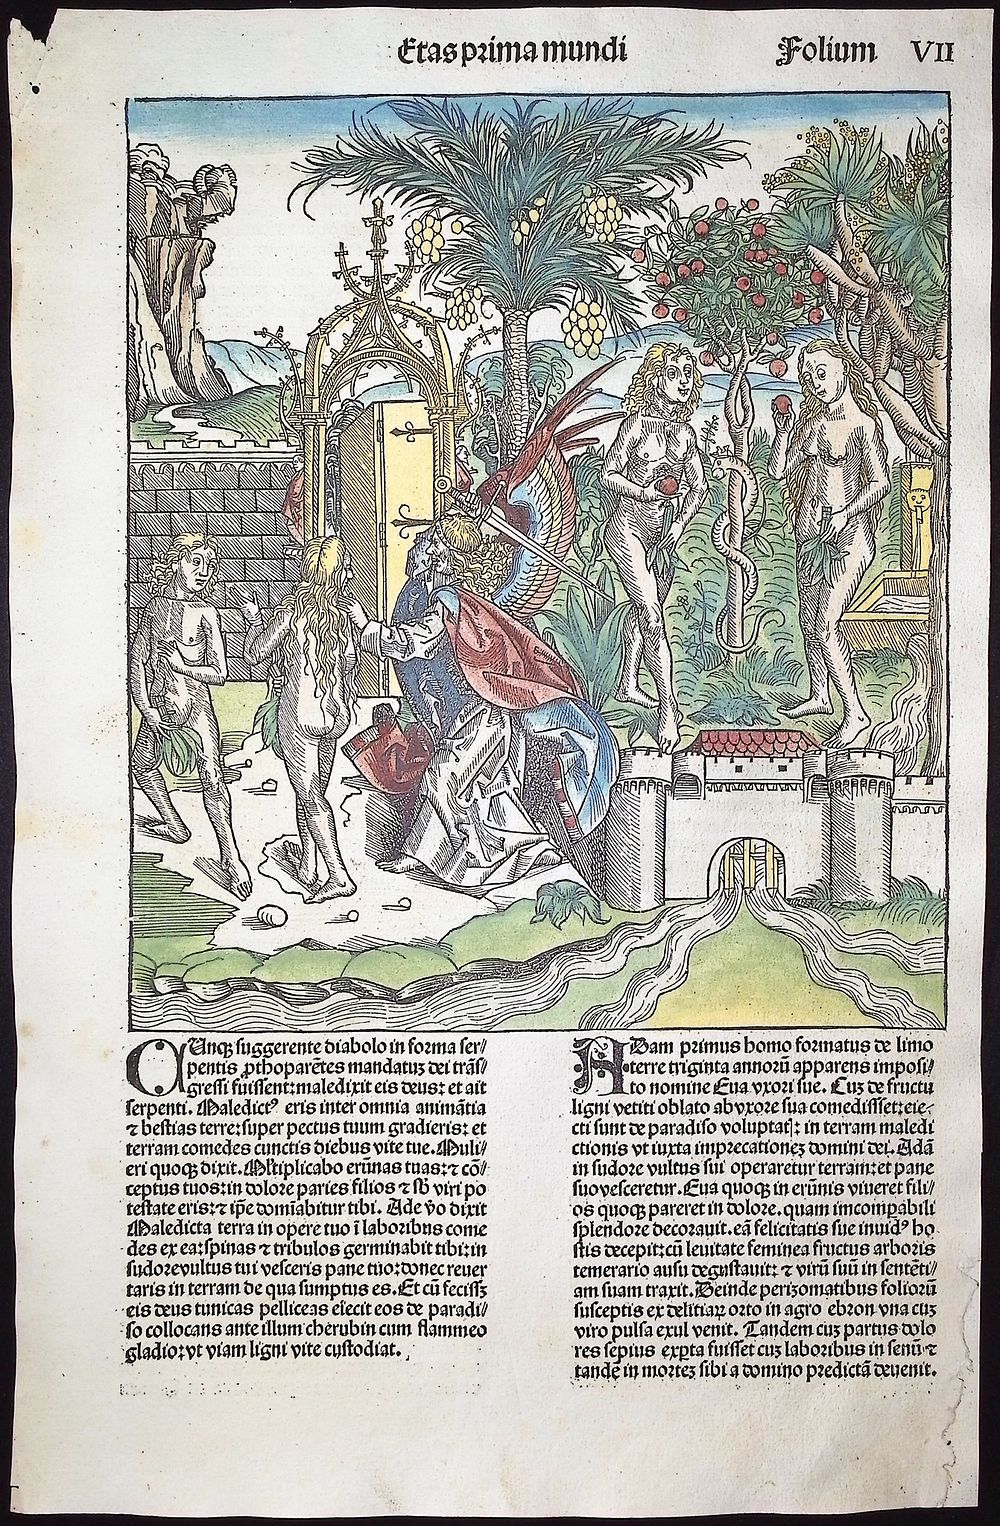 Etas prima mundi Folium VII
CUnqꝫ suggerente diabolo in forma ser⸗
pentis ꝓthoparētes mandatuꝫ dei trāſ⸗
greſſi fuiſſent: maledixit eis deus: et ait
ſerpenti. Maledictꝰ eris inter omnia animātia
⁊ beſtias terre: ſuper pectus tuum gradieris: et
terram comedes cunctis diebus vite tue. Muli⸗
eri quoqꝫ dixit. Mĺtiplicabo erūnas tuas: ⁊ cō⸗
ceptus tuos: in dolore paries filios ⁊ ſb viri po
teſtate eris: ⁊ ip̄e domīabitur tibi. Ade v̄o dixit
Maledicta terra in opere tuo ī laboribus come
des ex ea: ſpinas ⁊ tribulos germinabit tibi: in
ſudore vultus tui veſceris pane tuo: donec reuer
taris in terram de qua ſumptus es. Et cū feciſſꝫ
eis deus tunicas pelliceas eiecit eos de paradi⸗
ſo collocans ante illum cherubin cum flammeo
gladio: vt viam ligni vite cuſtodiat.
ADam primus homo formatus de limo
terre triginta annorū apparens impoſi⸗
to nomine Eua vxori ſue. Cuꝫ de fructu
ligni vetiti oblato ab vxore ſua comediſſet: eie⸗
cti ſunt de paradiſo voluptatꝭ: in terram maledi
ctionis vt iuxta imprecationeꝫ domini dei. Adā
in ſudore vultus ſui operaretur terram: et pane
ſuo veſceretur. Eua quoqꝫ in erūnis viueret fili⸗
os quoqꝫ pareret in dolore. quam incomꝑabili
ſplendore decorauit. eā felicitatis ſue inuidꝰ ho
ſtis decepit: cū leuitate feminea fructus arboris
temerario auſu deguſtauit: ⁊ virū ſuū in ſentēti⸗
am ſuam traxit. Deinde perizomatibus foliorū
ſuſceptis ex delitiaꝝ orto in agro ebron vna cuꝫ
viro pulſa exul venit. Tandem cuꝫ partus dolo
res ſepius exꝑta fuiſſet cuꝫ laboribus in ſeniū ⁊
tandē in morteꝫ ſibi a domino predictā deuenit.